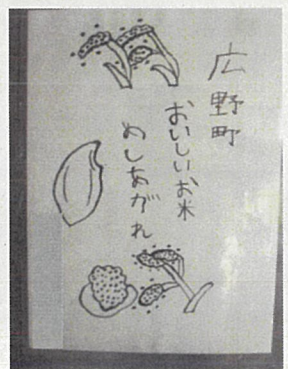 広野町
おいしいお米
めしあがれ